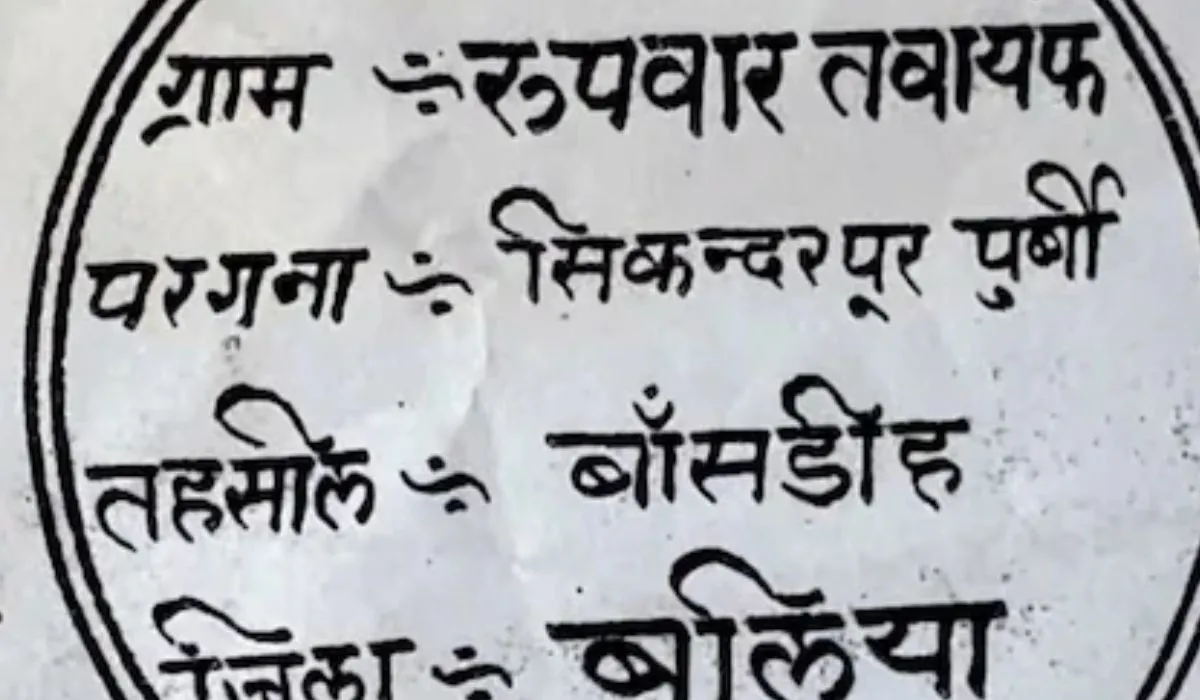 ग्राम ÷ रुपवार तवायफ
परगना ÷ सिकन्दरपूर पुर्बी
तहसील ÷ बाँसडीह
जिला ÷ बलिया